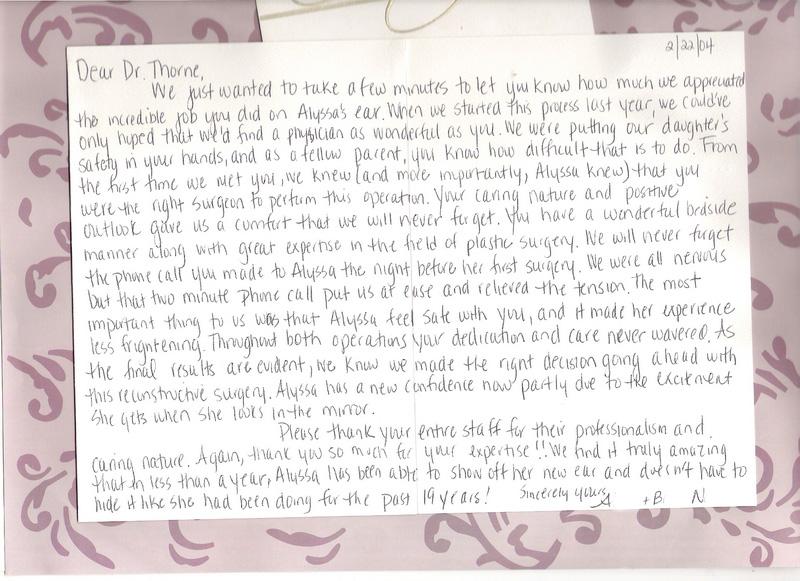 2/22/04
Dear Dr. Thorne,
We just wanted to take a few minutes to let you know how much we appreciated
the incredible job you did on Alyssa's ear. When we started this process last year, we could've
only hoped that we'd find a physician as wonderful as you. We were putting our daughter's
safety in your hands, and as a fellow parent, you know how difficult that is to do. From
the first time we met you, we knew (and more importantly, Alyssa knew) that you
were the right surgeon to perform this operation. Your caring nature and positive
outlook gave us a comfort that we will never forget. You have a wonderful bedside
manner along with great expertise in the field of plastic surgery. We will never forget
the phone call you made to Alyssa the night before her first surgery. We were all nervous
but that two minute phone call put us at ease and relieved the tension. The most
important thing to us was that Alyssa feel safe with you, and it made her experience
less frightening. Throughout both operations your dedication and care never wavered. As
the final results are evident, we know we made the right decision going ahead with
this reconstructive surgery. Alyssa has a new confidence now partly due to the excitement
she gets when she looks in the mirror.
Please thank your entire staff for their professionalism and
caring nature. Again, thank you so much for your expertise!! We find it truly amazing
that in less than a year, Alyssa has been able to show off her new ear and doesn't have to
hide it like she had been doing for the past 19 years! Sincerely yours, A + B. N